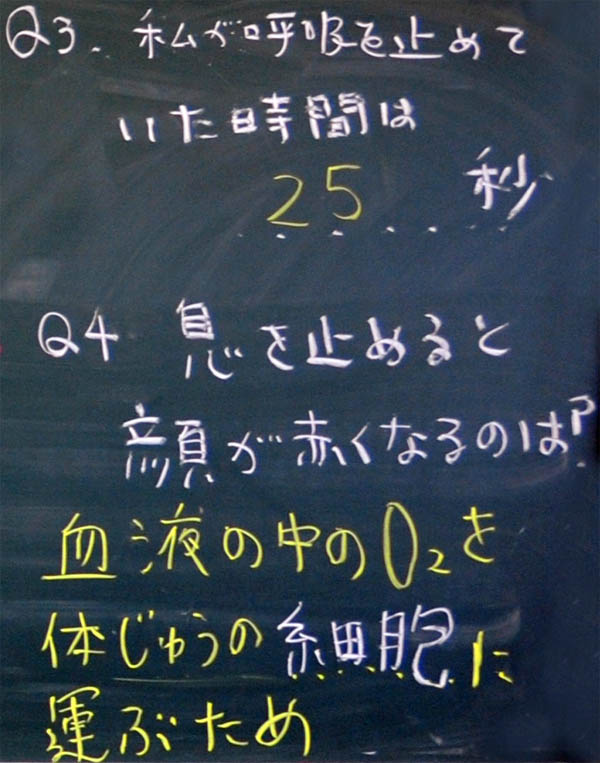 Q3. 私が呼吸を止めて
いた時間は
25 秒
Q4 息を止めると
顔が赤くなるのは?
血液の中のO₂を
体じゅうの細胞に
運ぶため